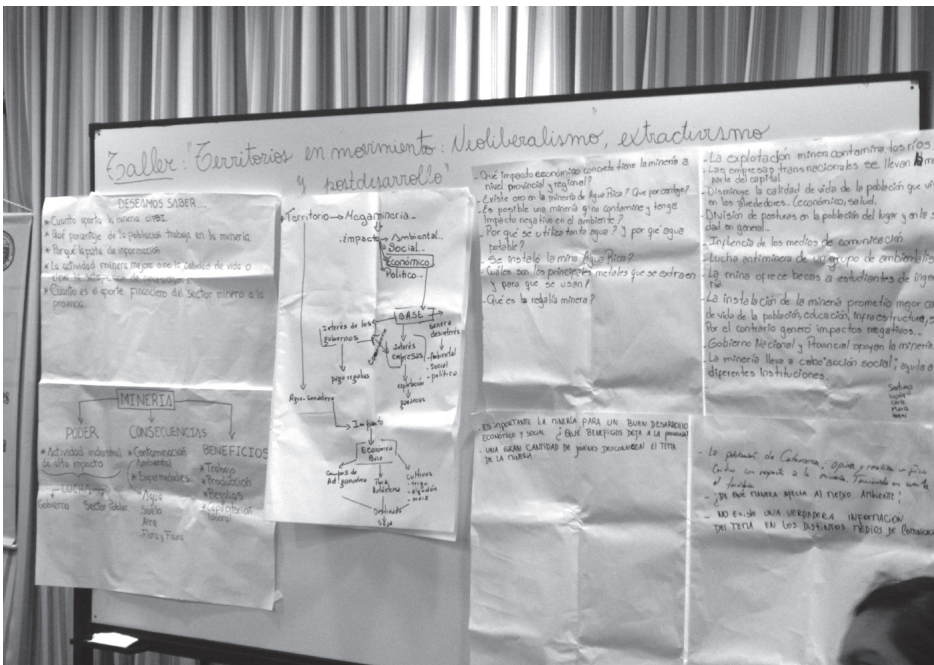 Taller: "Territorios en movimiento: Neoliberalismo, extractivismo
y postdesarrollo"
DESEAMOS SABER...
* Cuanto aporta la minera
* Qué porcentaje de la población trabaja en la minería
* Porqué la falta de información
* La actividad minera mejora o no la calidad de vida
* Cuanto es el aporte financiero del Sector minero a la
provincia.
MINERIA
PODER
CONSECUENCIAS
BENEFICIOS
* Actividad industrial
de alto impacto
LUCHA
Gobierno Sector Público
* Contaminación
Ambiental
* Enfermedades
Agua
Suelo
Aire
Flora y Fauna
* Trabajo
* Producción
* Regalías
* Capacitación
laboral
Territorio → Megaminería...
.impacto → Ambiental..
Social...
Económico
Político..
BASE
Interés de los
gobiernos
Interés
empresas
Genera
desinterés
- Ambiental
- Social
- político
pago regalías
explotación
ganancias
Agro-Ganadero
→ Impacto
Económico
Base
Cultivos
- trigo
- algodón
- maíz
Destinado
Soja
- Qué impacto económico concreto tiene la minería a
nivel provincial y regional?
- Existe oro en la minería de Agua Rica? Que porcentaje?
- Es posible una minería q' no contamine y tenga
impacto negativo en el ambiente?
- Por qué se utiliza tanta agua? Y por qué agua
potable?
- Se instaló la mina Agua Rica?
- Cuáles son los principales metales que se extraen
y para que se usan?
- Qué es la regalía minera?
- La explotación minera contamina los ríos
- Las empresas transnacionales se llevan la
parte del capital
- Disminuye la calidad de vida de la población que
en los alrededores. (económico, salud.
- División de posturas en la población del lugar y en la
dad en general.
- Influencia de los medios de comunicación
- Lucha antiminera de un grupo de
- La mina ofrece becas a estudiantes de
ría.
- La instalación de la minería prometió mejor
de vida de la población, educación, infraestructura,
Por el contrario generó impactos negativos...
- Gobierno Nacional y Provincial apoyan la minería.
- La minería lleva a cabo "acción social", ayuda a
diferentes instituciones.
. ES IMPORTANTE LA MINERÍA PARA UN BUEN DESARROLLO
ECONÓMICO Y SOCIAL ¿QUÉ BENEFICIOS DEJA A LA
- UNA GRAN CANTIDAD DE JOVENES DESCONOCEN EL TEMA
DE LA MINERIA.
- La población de Catamarca, opina y realiza un
con respecto a la minería. Teniendo en cuenta
- ¿DE QUÉ MANERA AFECTA AL MEDIO AMBIENTE?
- NO EXISTE UNA VERDADERA INFORMACIÓN
DEL TEMA EN LOS DISTINTOS MEDIOS DE